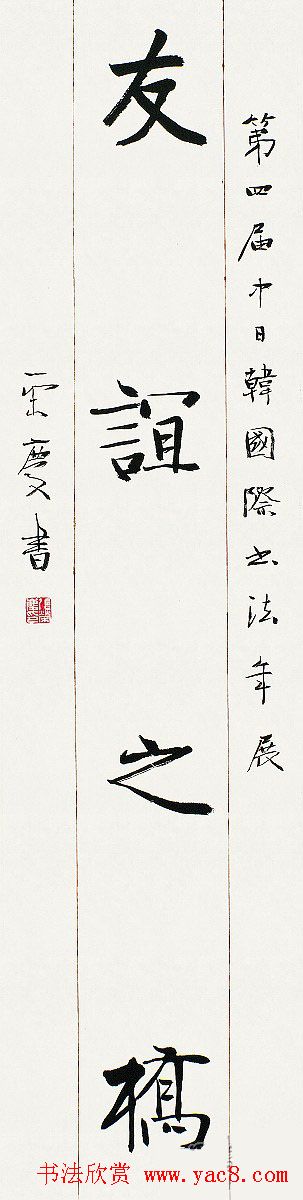 第四届中日韓國際书法年展
友誼之橋
雲慶書
书法欣赏 www.yac8.com